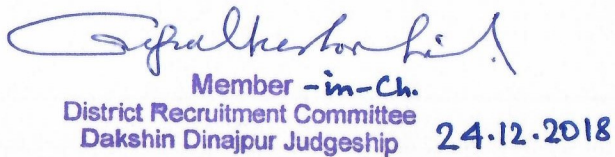 Member -in-Ch.
District Recruitment Committee
Dakshin Dinajpur Judgeship 24.12.2018